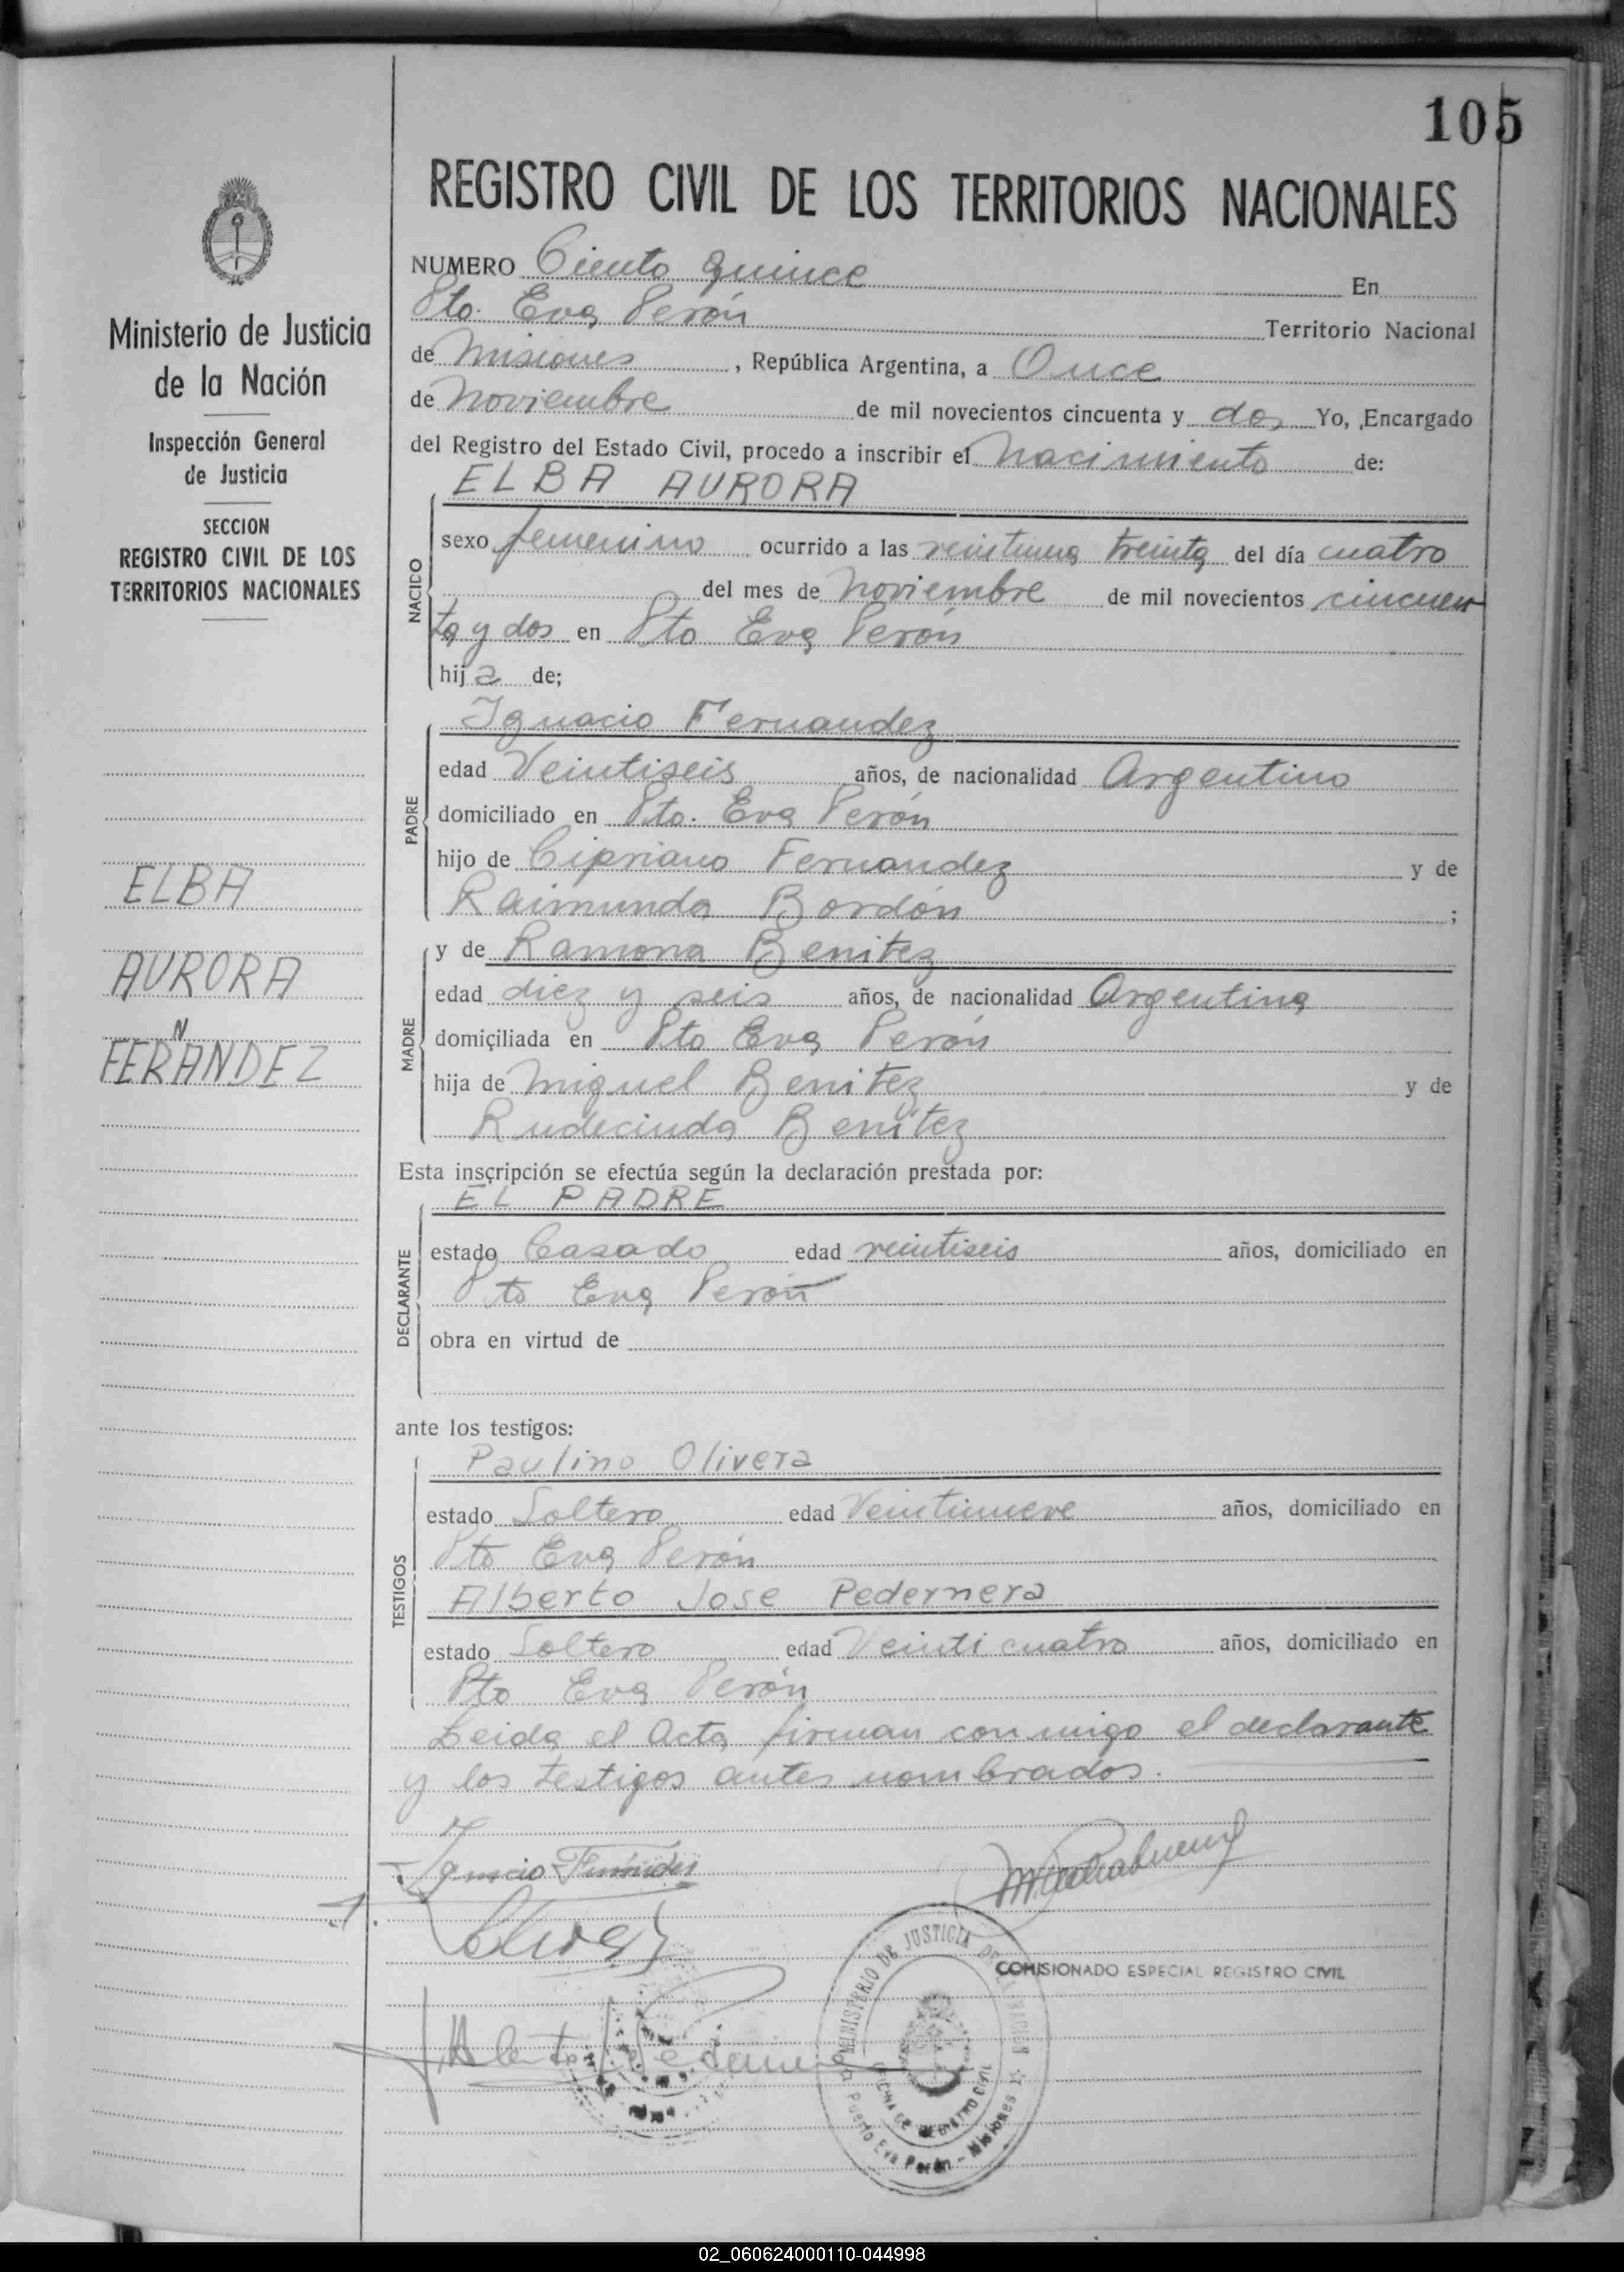 105
REGISTRO CIVIL DE LOS TERRITORIOS NACIONALES
Ministerio de Justicia
de la Nación
Inspección General
de Justicia
SECCION
REGISTRO CIVIL DE LOS
TERRITORIOS NACIONALES
ELBA
AURORA
N
FERANDEZ
NUMERO Ciento quince En
Pto. Eva Perón Territorio Nacional
de Misiones, República Argentina, a Once
de Noviembre de mil novecientos cincuenta y dos Yo, Encargado
del Registro del Estado Civil, procedo a inscribir el Nacimiento de:
ELBA AURORA
NACIDO
sexo femenino ocurrido a las veintiuna treinta del día cuatro
del mes de Noviembre de mil novecientos cincuen
ta y dos en Pto Eva Perón
hija de;
Ignacio Fernandez
PADRE
edad Veintiseis años, de nacionalidad Argentino
domiciliado en Pto. Eva Perón
hijo de Cipriano Fernandez y de
Raimunda Bordón ;
y de Ramona Benitez
MADRE
edad diez y seis años, de nacionalidad Argentina
domiciliada en Pto Eva Perón
hija de Miguel Benitez y de
Rudecinda Benítez
Esta inscripción se efectúa según la declaración prestada por:
EL PADRE
DECLARANTE
estado Casado edad veintiseis años, domiciliado en
Pto Eva Perón
obra en virtud de
ante los testigos:
Paulino Olivera
TESTIGOS
estado Soltero edad Veintinueve años, domiciliado en
Pto Eva Perón
Alberto Jose Pedernera
estado Soltero edad Veinti cuatro años, domiciliado en
Pto Eva Perón
Leida el Acta firman conmigo el declarante
y los testigos antes nombrados.
Ignacio Fernández
COMISIONADO ESPECIAL REGISTRO CIVIL
MINISTERIO DE JUSTICIA DE LA NACION
OFICINA DE REGISTRO CIVIL
Puerto Eva Perón - Misiones
02_060624000110-044998